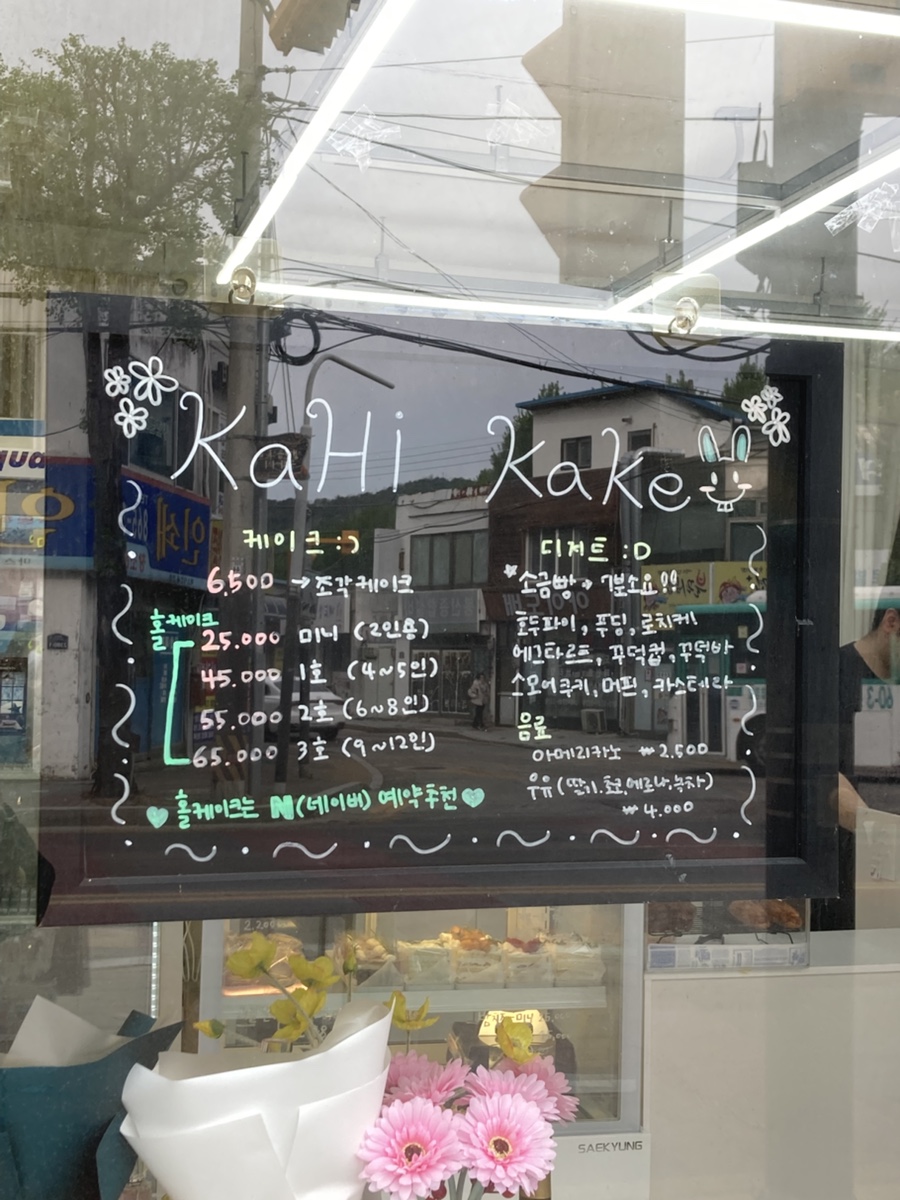 KaHi Kake
케이크 :)
6,500 → 조각케이크
홀케이크
25.000 미니 (2인용)
45.000 1호 (4~5인)
55.000 2호 (6~8인)
65.000 3호 (9~12인)
홀케이크는 N(네이버) 예약추천
디저트 :D
소금빵 → 기본소요!!
호두파이, 푸딩, 로치케!
에그타르트, 꾸덕컵, 꾸덕바
스모어쿠키, 머핀, 카스테라
음료
아메리카노 ₩2,500
우유(딸기, 초코, 바나나, 녹차)
₩4.000
2.200
SAEKYUNG